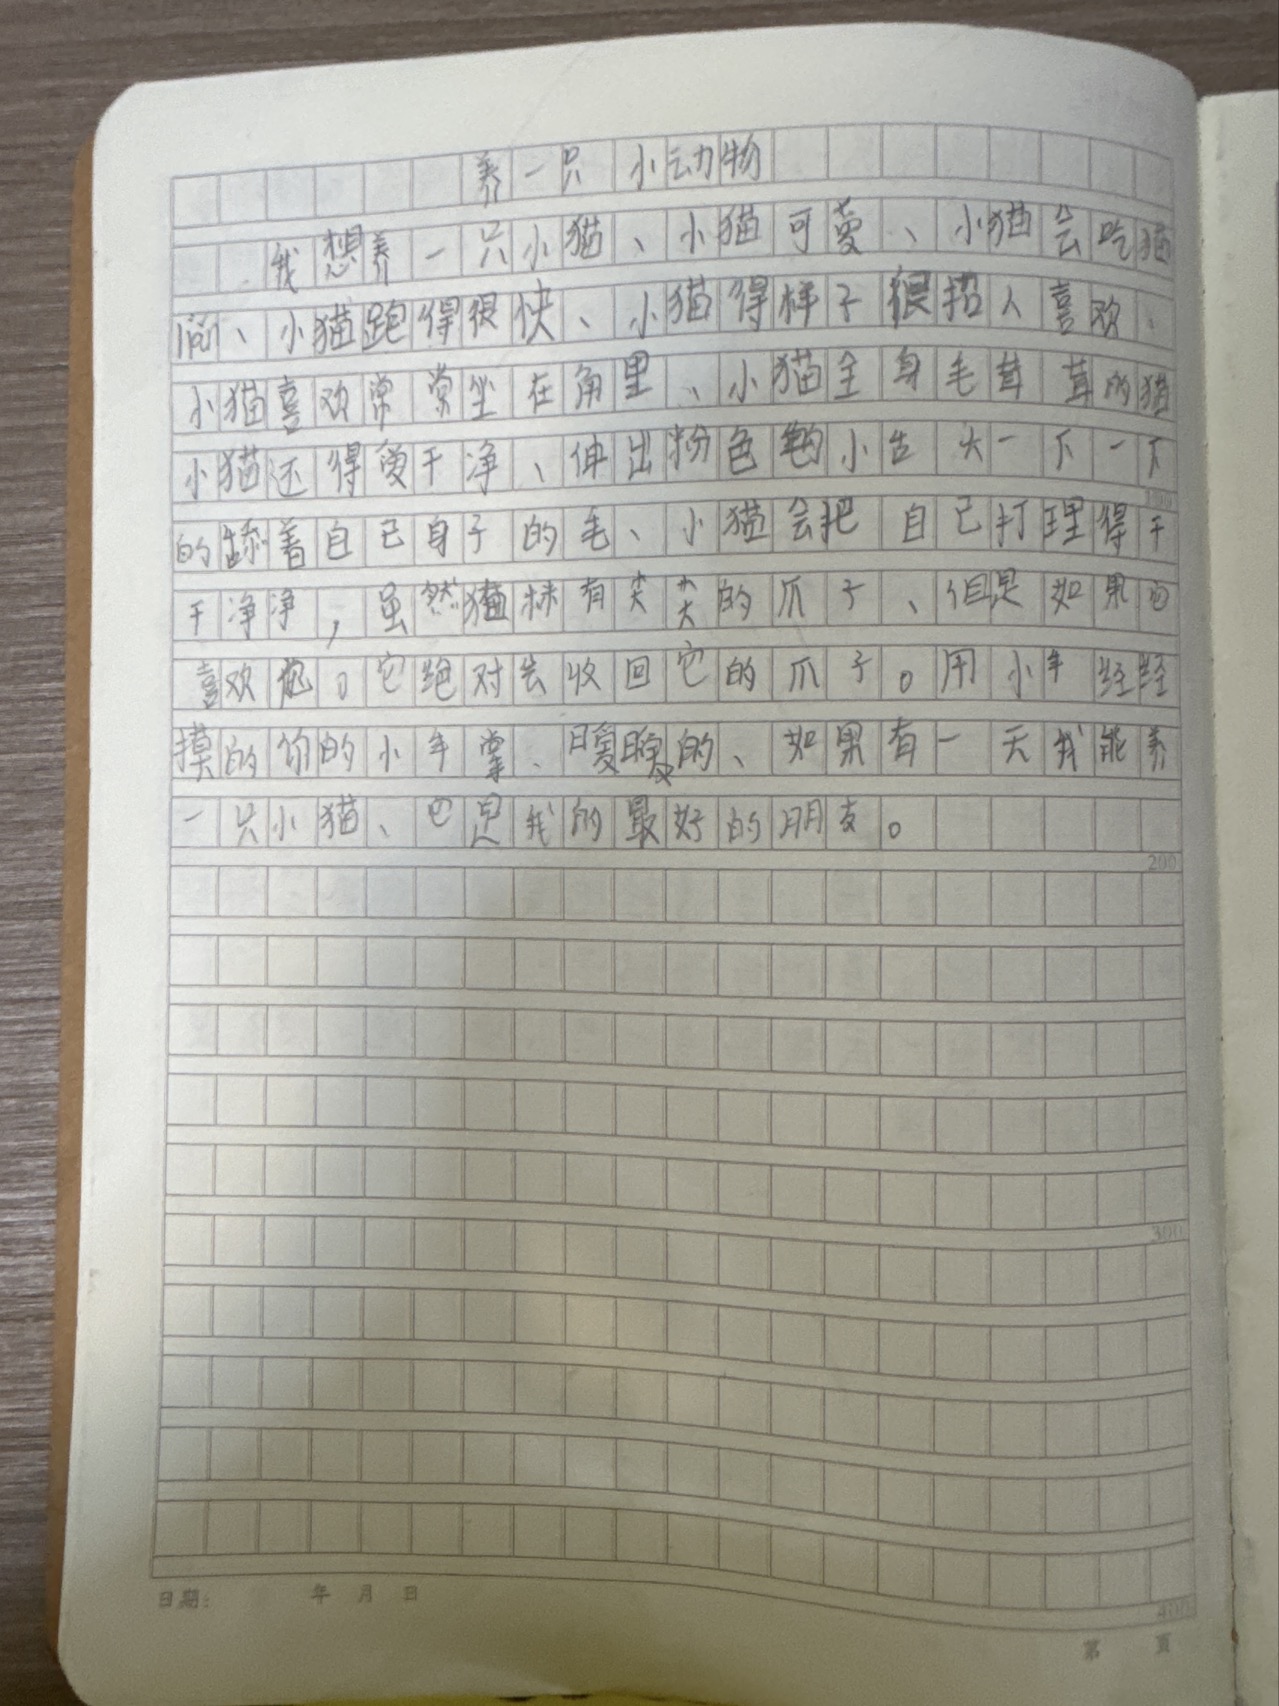 养一只小动物
我想养一只小猫、小猫可爱、小猫会吃猫
、小猫跑得很快、小猫得样子很招人喜欢、
小猫喜欢常常坐在角里、小猫全身毛茸茸的猫
小猫还得爱干净、伸出粉色的小舌头一下一下
的舔着自己身子的毛、小猫会把自己打理得干
干净净，虽然猫有尖尖的爪子、但是如果它
喜欢你。它绝对会收回它的爪子。用小手经经
摸的你的小手掌、暖暖的、如果有一天我能养
一只小猫、它是我的最好的朋友。
100
200
300
400
日期： 年 月 日
第 页